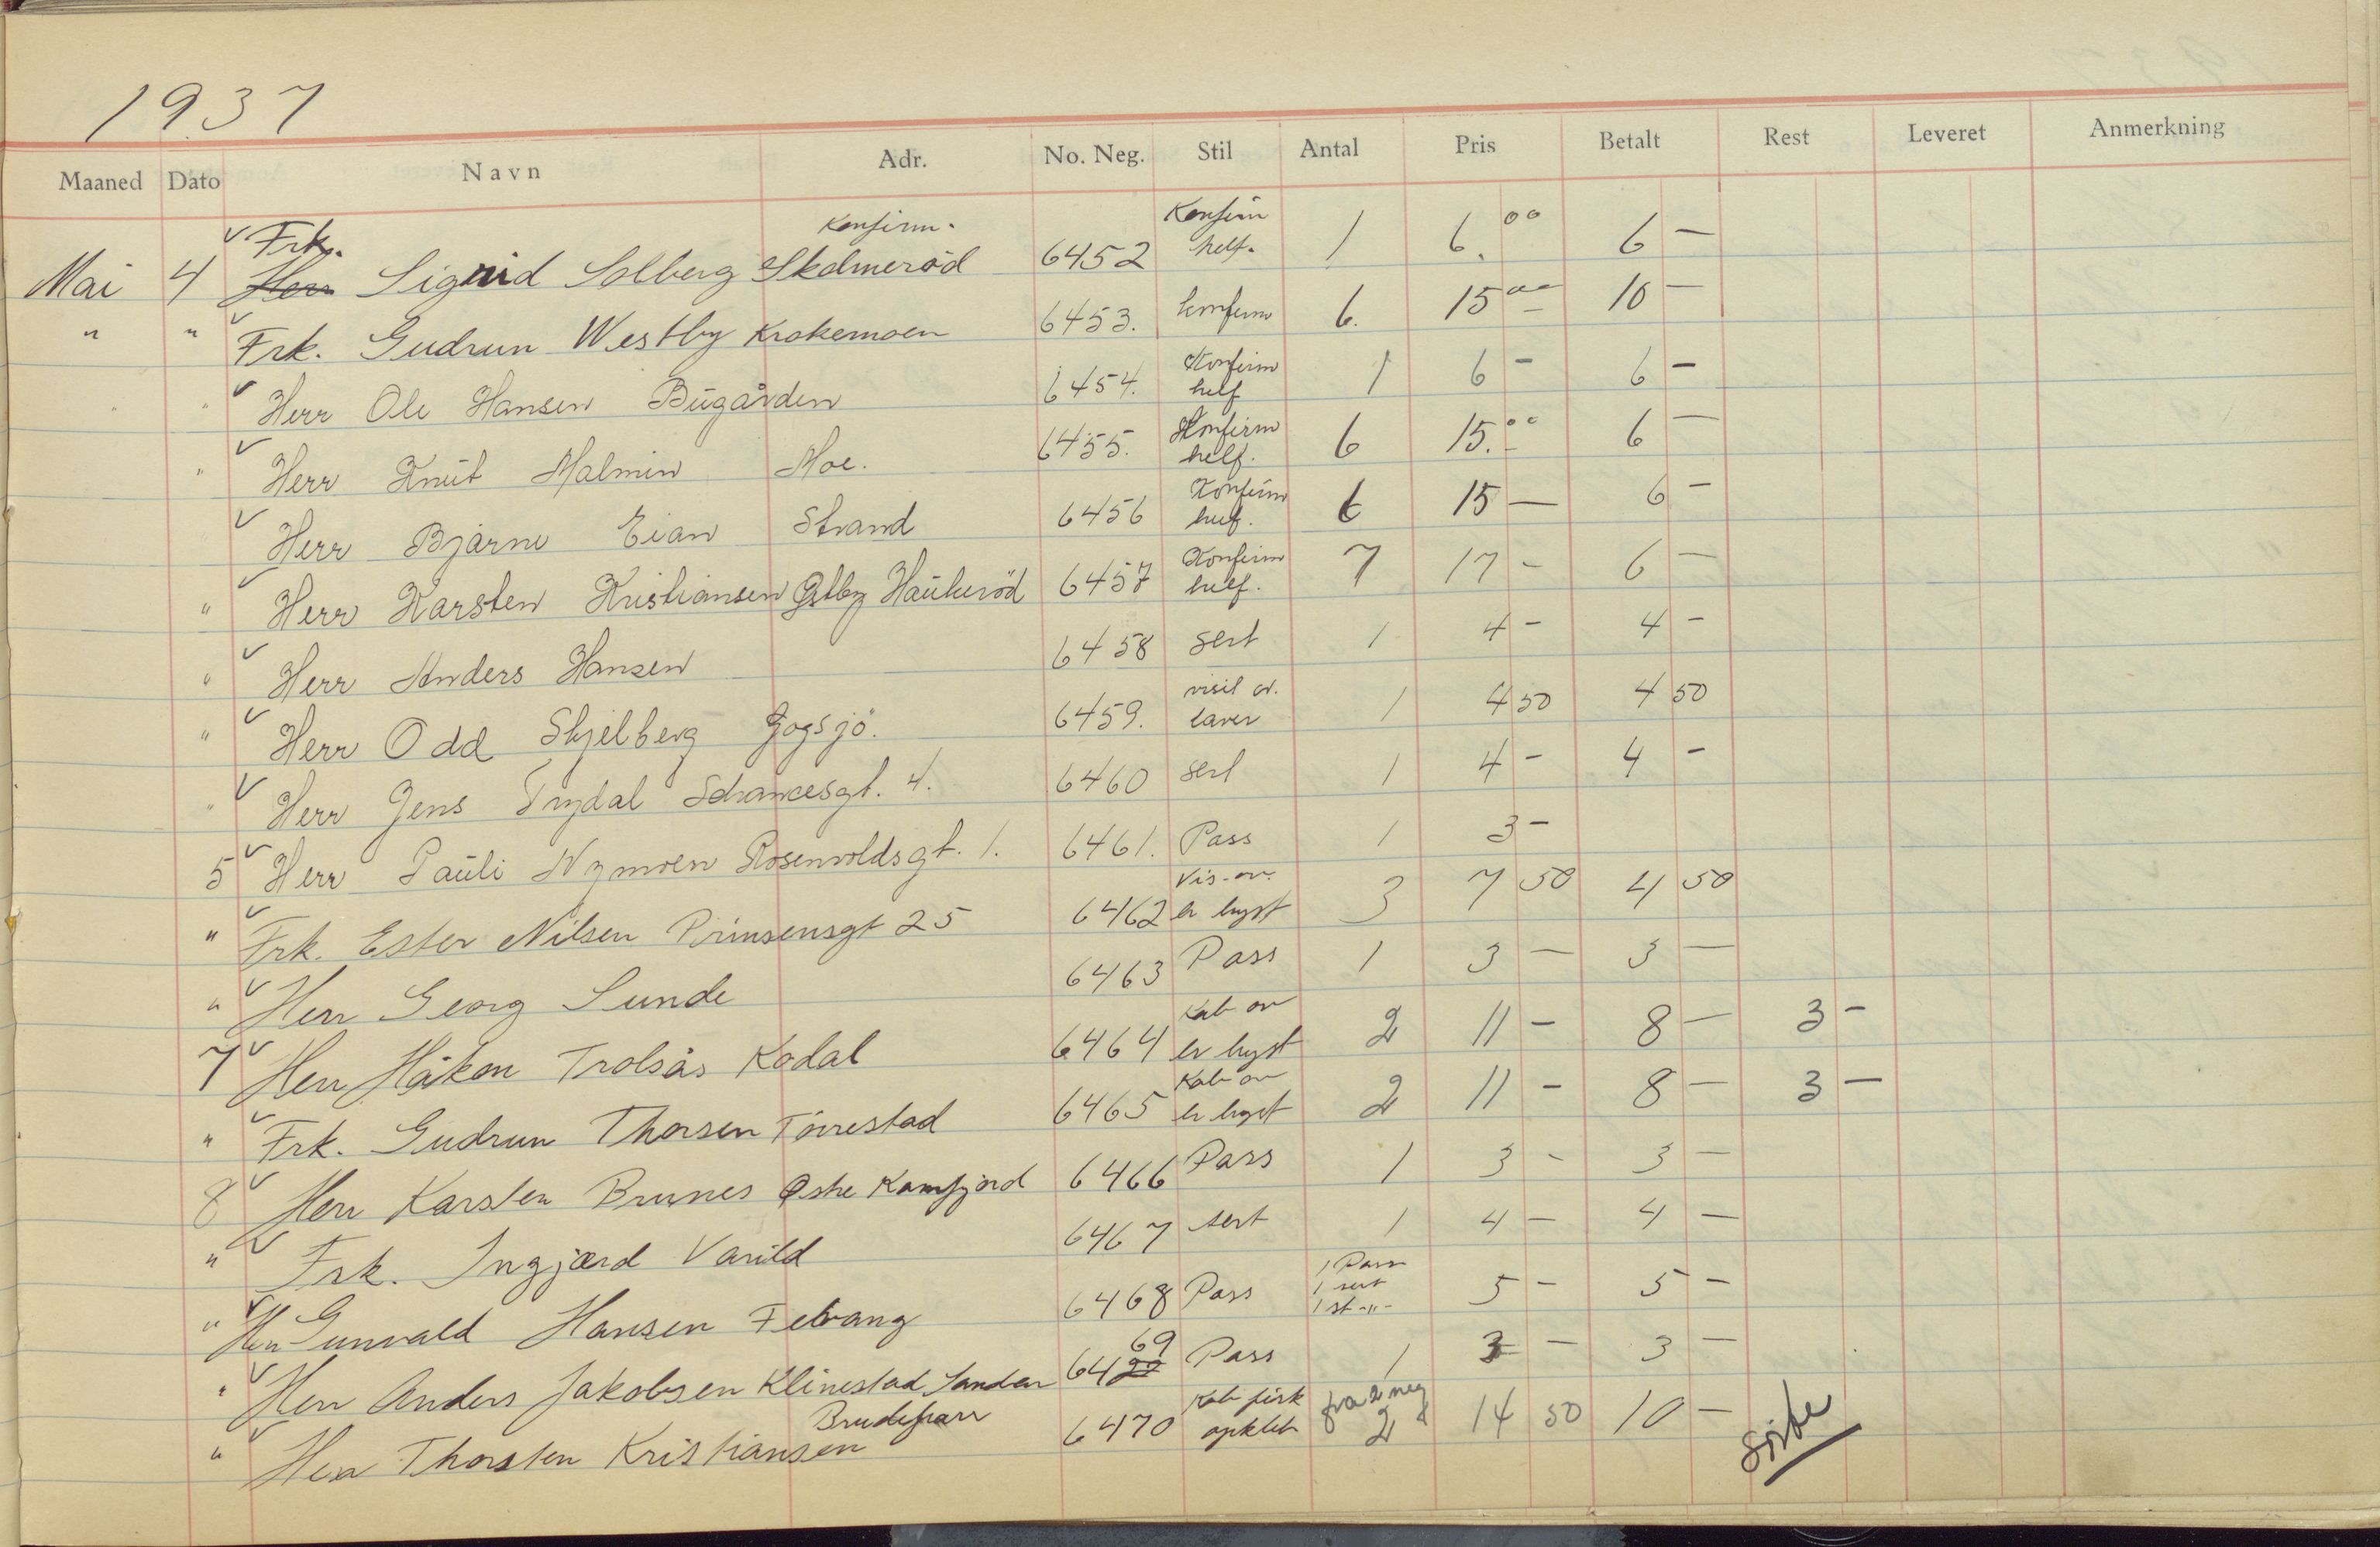 1937
Maaned Dato Navn Adr. No. Neg. Stil Antal Pris Betalt Rest Leveret Anmerkning
Mai 4 Frk. Herr Sigrid Solberg Skolmeröd Konfirm. 6452 Konfirm helf. 1 6.00 6 –
" " Frk. Gudrun Westby Krokemoen 6453. konfirm 6. 15 00 10 –
" " Herr Ole Hansen Bugården 6454. Konfirm helf 1 6 – 6 –
" Herr Knut Malmin Moe. 6455. Konfirm helf. 6 15.00 6 –
Herr Bjarne Eian Strand 6456 Konfirm helf. 6 15 – 6 –
" Herr Karsten Kristiansen Østby Haukeröd 6457 Konfirm helf. 7 17 – 6 –
" Herr Anders Hansen 6458 sert 1 4 – 4 –
" Herr Odd Skjelberg Gogsjö. 6459. visit 1 4 50 4 50
" Herr Jens Trydal Schancesgt. 4. 6460 sert 1 4 – 4 –
5 Herr Pauli Nymoen Rosenvoldsgt. 1. 6461. Pass 1 3 –
" Frk. Ester Nilsen Prinsensgt 25 6462 Vis. ov. 3 7 50 4 50
" Herr Georg Sunde 6463 Pass 1 3 – 3 –
7 Herr Håkon Trolsås Kodal 6464 Kab ov 2 11 – 8 – 3 –
" Frk. Gudrun Thorsen Törrestad 6465 Kab ov 2 11 – 8 – 3 –
8 Herr Karsten Brunes Østre Kamfjord 6466 Pass 1 3 – 3 –
" Frk. Ingjærd Varild 6467 sert 1 4 – 4 –
" Herr Gunvald Hansen Fevang 6468 Pass 1 Pass 1 sert 1 st -"- 5 – 5 –
" Herr Anders Jakobsen Klinestad Sandar 6469 Pass 1 3 – 3 –
" Herr Thorsten Kristiansen Brudepar 6470 Kab opkleb fra 2 neg 2 14 50 10 –